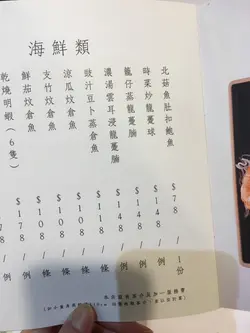 海鮮類
北菇魚肚扣鮑魚 $78/1份
時菜炒龍躉球 $108/例
籠仔蒸龍躉腩 $108/例
濃湯雲耳浸龍躉腩 $108/例
豉汁豆卜蒸倉魚 $108/條
涼瓜炆倉魚 /條
支竹炆倉魚 /條
鮮茄炆倉魚 /條
乾燒明蝦(6隻) /例